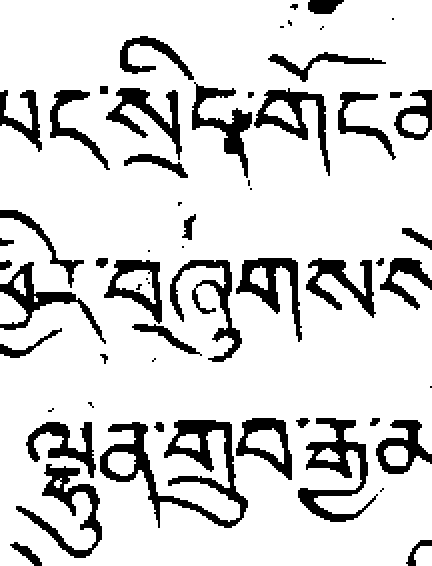 ཡང་སྲིད་གོང་མ
ཁྲིར་བཞུགས་ས
ལྷུན་གྲུབ་རྒྱ་མ